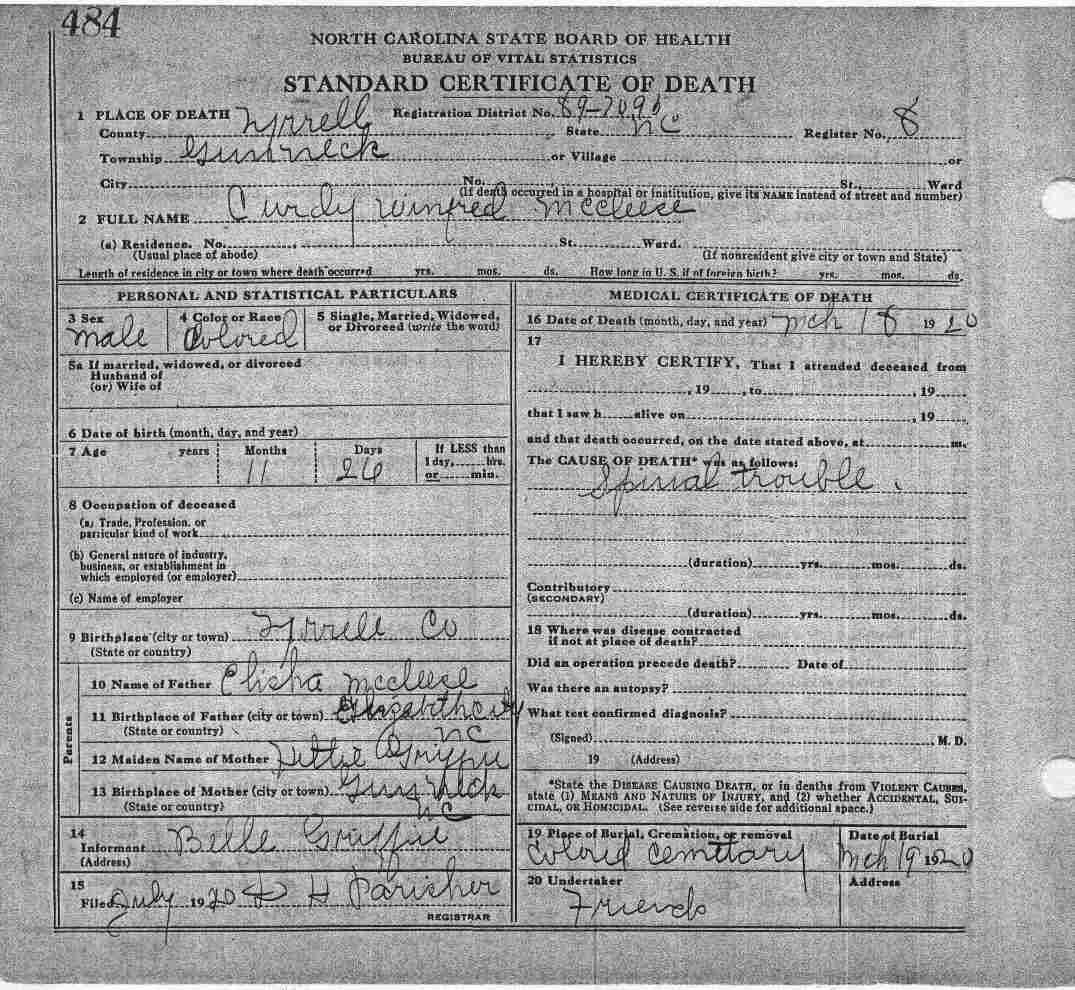 484
NORTH CAROLINA STATE BOARD OF HEALTH
BUREAU OF VITAL STATISTICS
STANDARD CERTIFICATE OF DEATH
1 PLACE OF DEATH Registration District No. 89-7090
County Tyrrell State NC Register No. 8
Township Gumneck or Village or
City No. St., Ward
(If death occurred in a hospital or institution, give its NAME instead of street and number)
2 FULL NAME Curdy Winfred McCleese
(a) Residence. No. St. Ward.
(Usual place of abode) (If nonresident give city or town and State)
Length of residence in city or town where death occurred yrs. mos. ds. How long in U. S. if of foreign birth? yrs. mos. ds.
PERSONAL AND STATISTICAL PARTICULARS
3 Sex 4 Color or Race 5 Single, Married, Widowed, or Divorced (write the word)
male Colored
5a If married, widowed, or divorced
Husband of
(or) Wife of
6 Date of birth (month, day, and year)
7 Age years Months Days If LESS than
1 day, hrs.
11 26 or min.
8 Occupation of deceased
(a) Trade, Profession, or
particular kind of work
(b) General nature of industry,
business, or establishment in
which employed (or employer)
(c) Name of employer
9 Birthplace (city or town) Tyrrell Co
(State or country)
Parents
10 Name of Father Elisha McCleese
11 Birthplace of Father (city or town) Elizabeth City
(State or country) NC
12 Maiden Name of Mother Griffin
13 Birthplace of Mother (city or town) Gum Neck
(State or country) NC
14
Informant Belle Griffin
(Address)
15
Filed July 1920 H Parisher
REGISTRAR
MEDICAL CERTIFICATE OF DEATH
16 Date of Death (month, day, and year) Mch 18 1920
17
I HEREBY CERTIFY, That I attended deceased from
, 19 , to , 19
that I saw h alive on , 19
and that death occurred, on the date stated above, at m.
The CAUSE OF DEATH* was as follows:
Spinal trouble.
(duration) yrs. mos. ds.
Contributory
(SECONDARY)
(duration) yrs. mos. ds.
18 Where was disease contracted
if not at place of death?
Did an operation precede death? Date of
Was there an autopsy?
What test confirmed diagnosis?
(Signed) , M. D.
19 (Address)
*State the DISEASE CAUSING DEATH, or in deaths from VIOLENT CAUSES,
state (1) MEANS AND NATURE OF INJURY, and (2) whether ACCIDENTAL, SUI-
CIDAL, OR HOMICIDAL. (See reverse side for additional space.)
19 Place of Burial, Cremation, or removal Date of Burial
Colored Cemetary Mch 19 1920
20 Undertaker Address
Friends